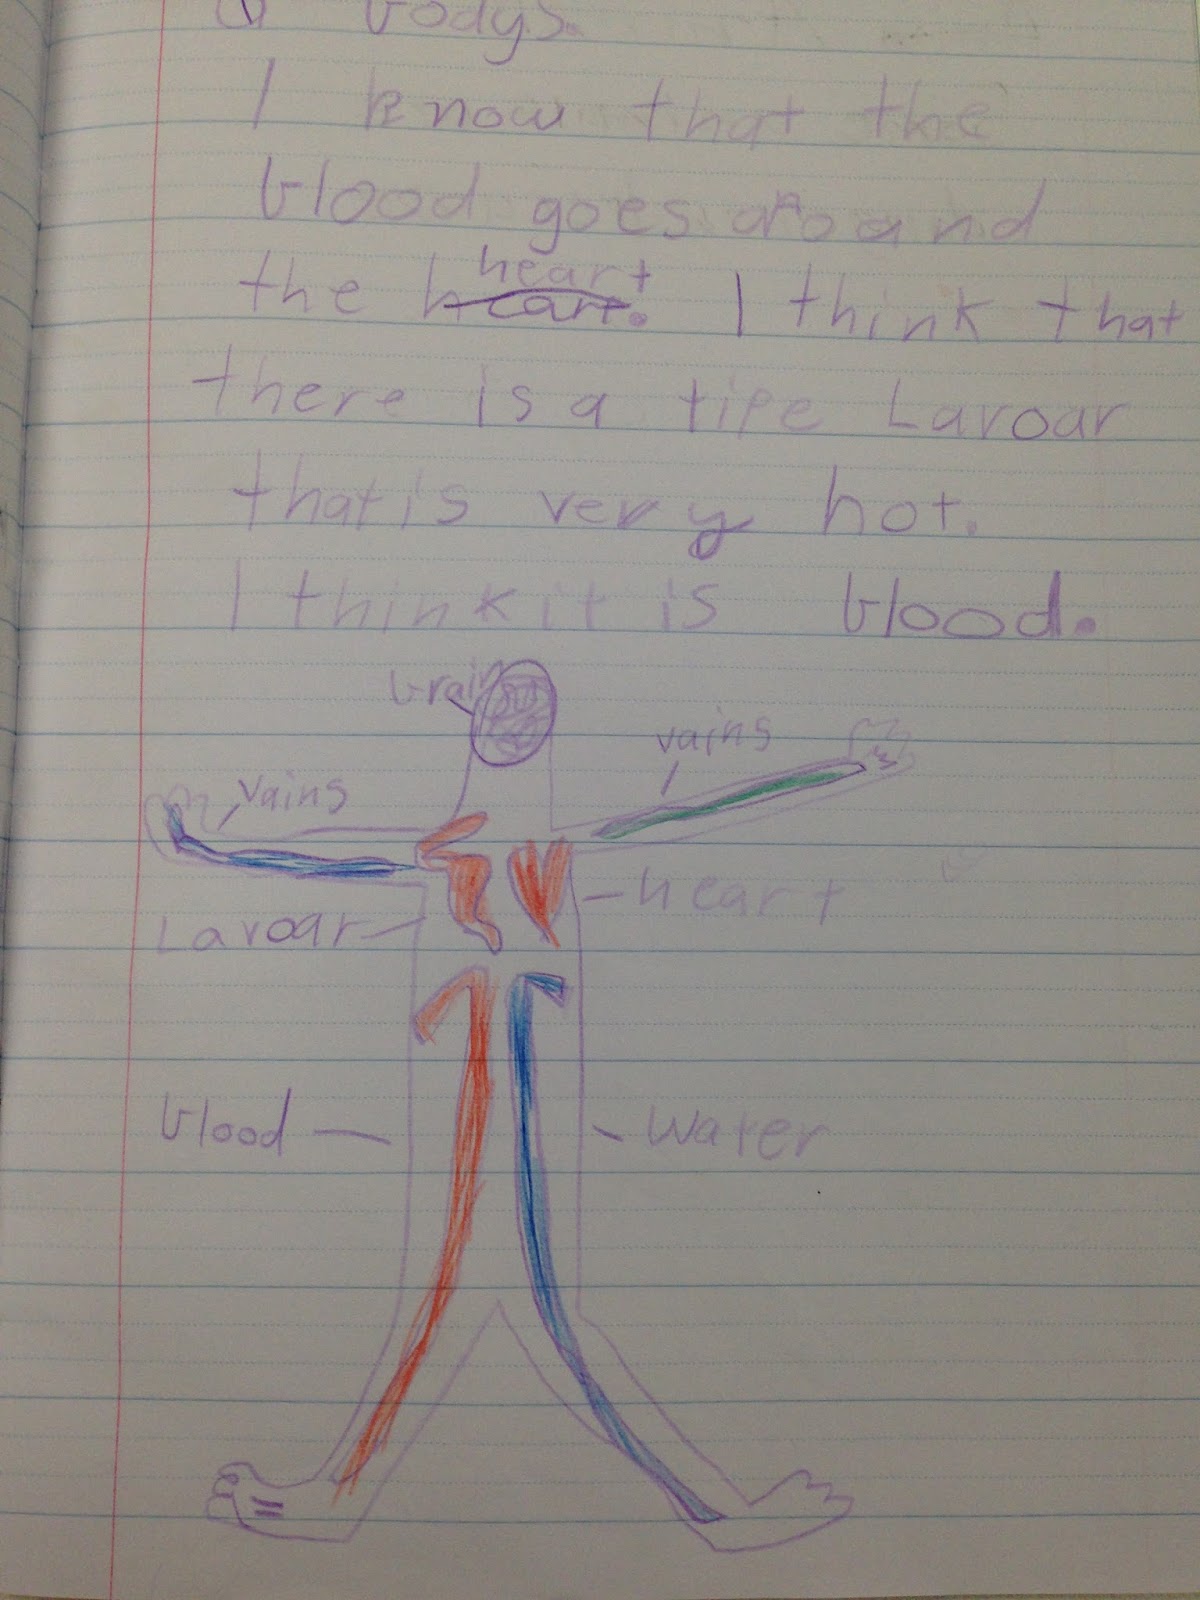 bodys.
I know that the
blood goes aroand
the heart heart. I think that
there is a tipe Lavoar
that is very hot.
I think it is blood.
brain
vains
vains
Lavoar
heart
blood
water